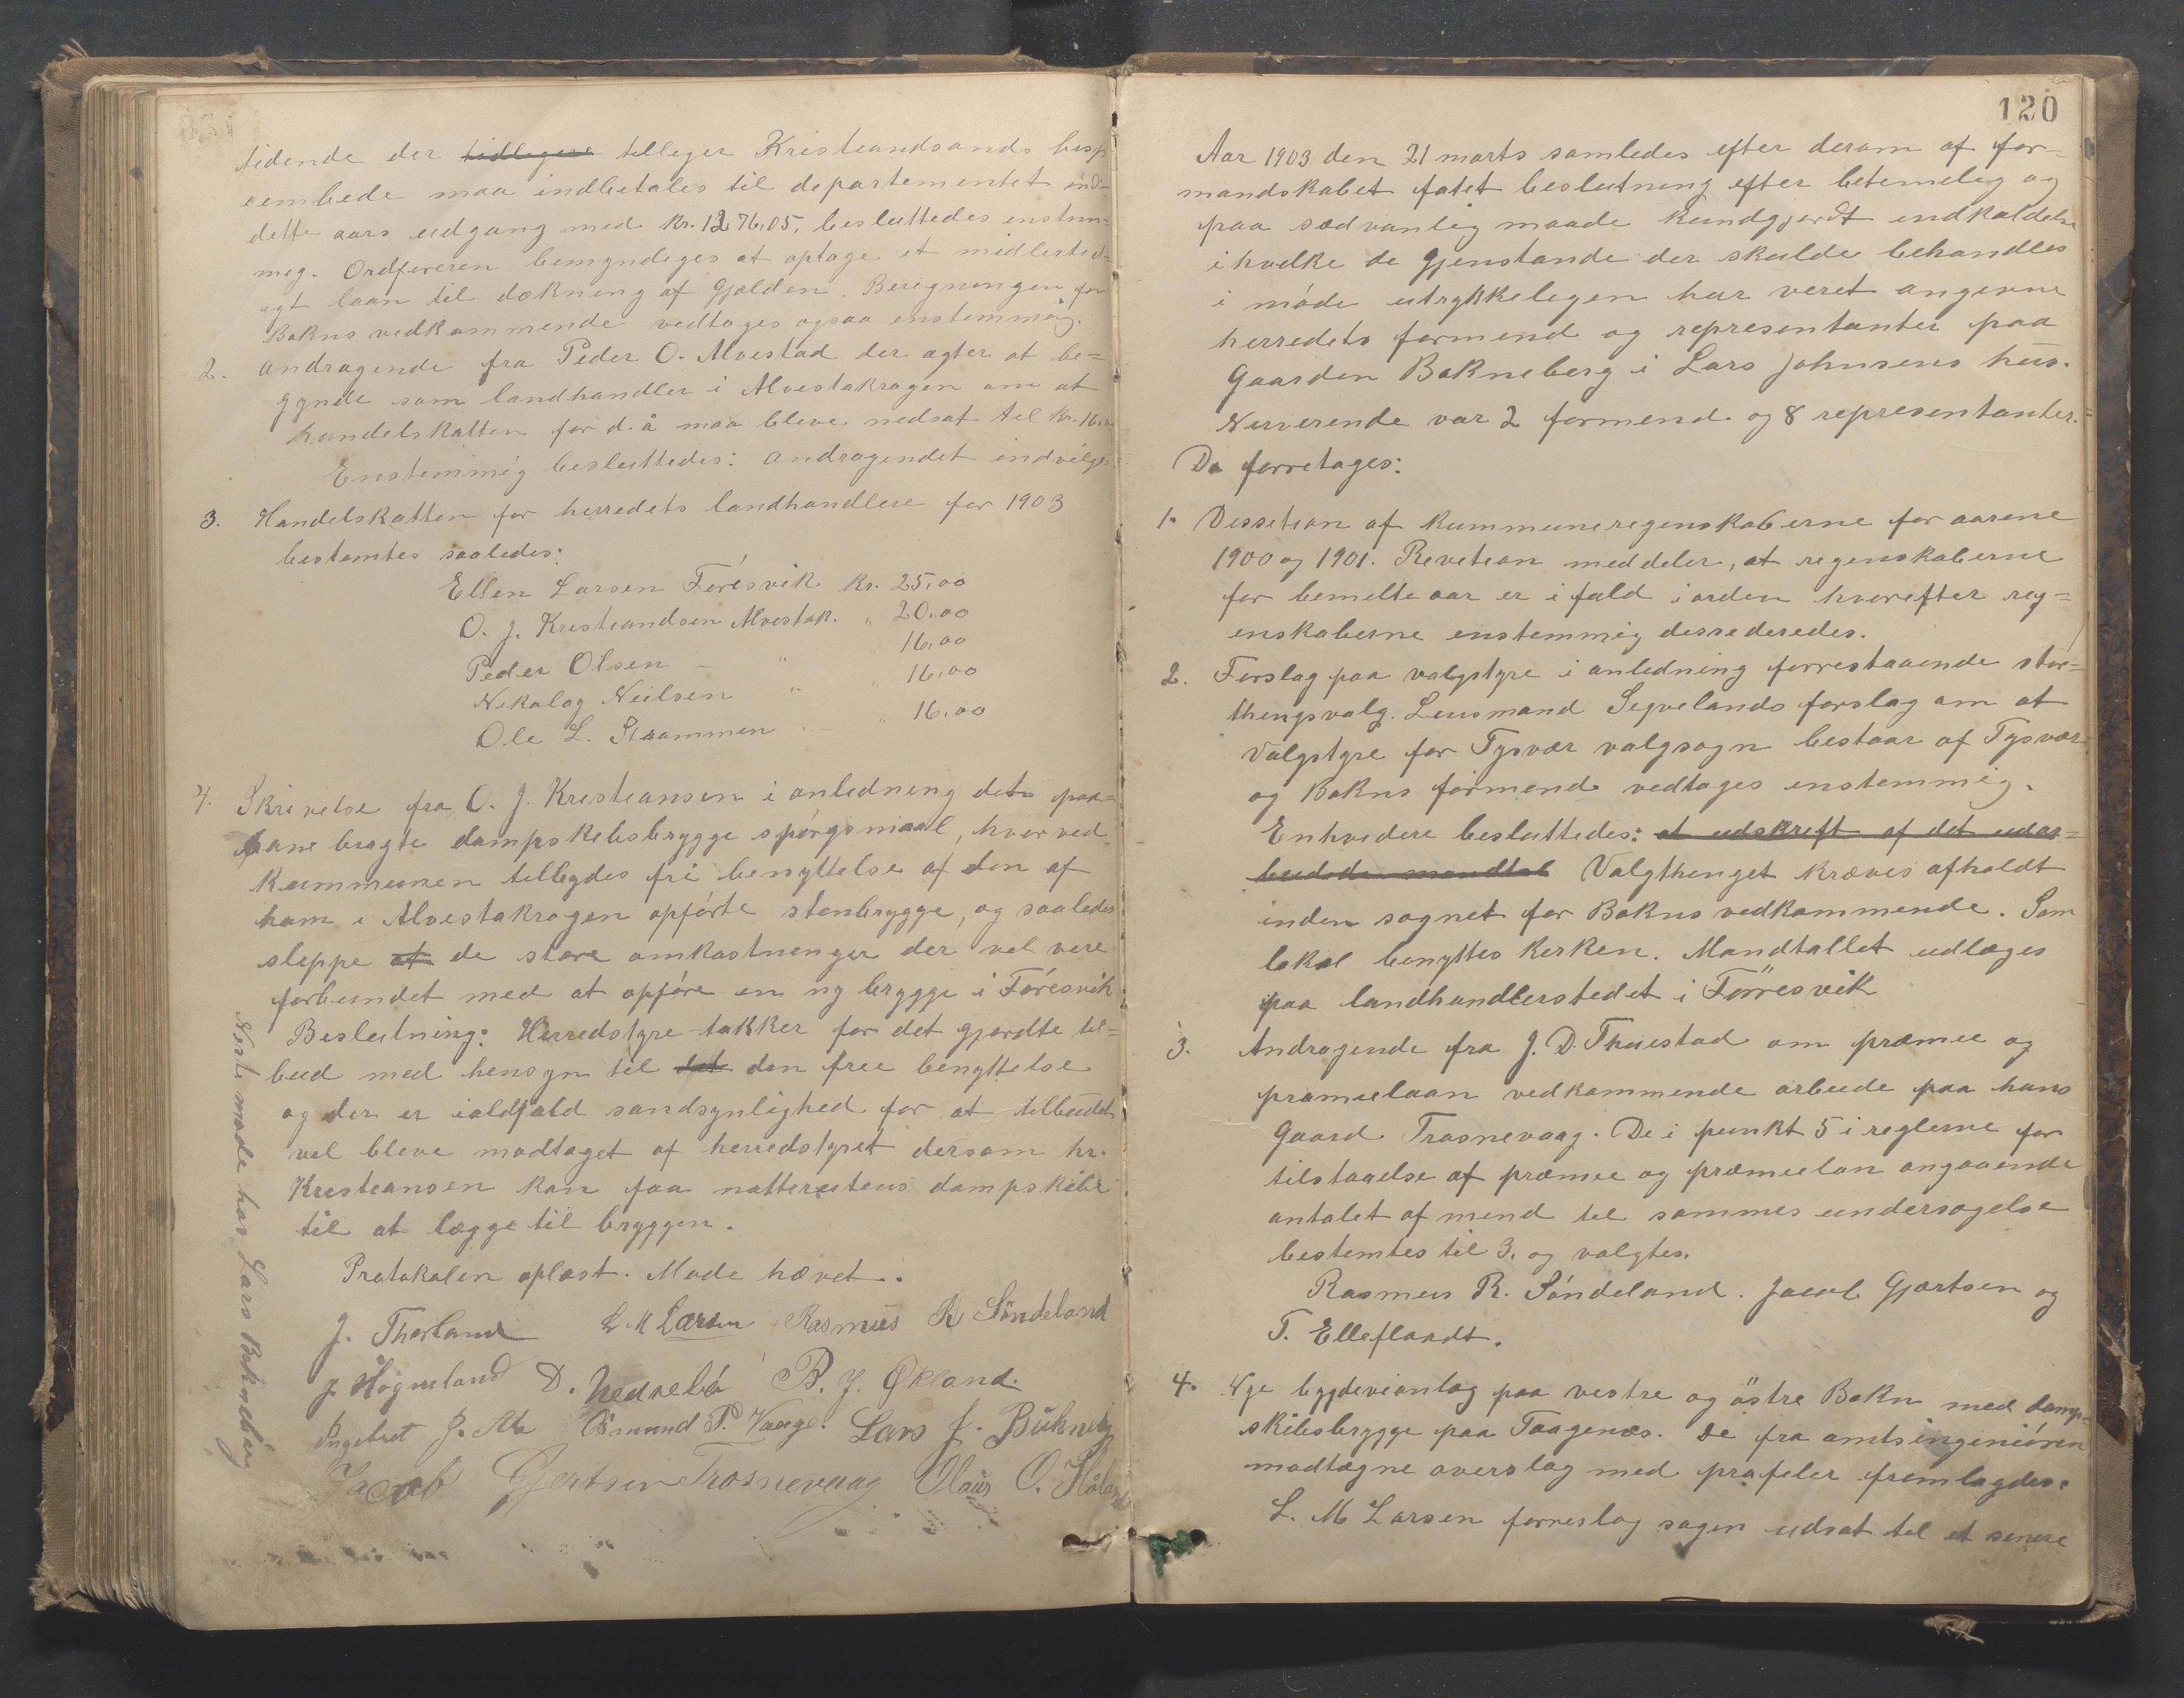 tidende der tidligere telleger Kristiandsands bisp
eembede maa indbetales til departementet ind-
dette aars udgang med kr. 1276,05, besluttedes enstem-
mig. Ordføreren bemyndiges at optage et midlertid-
igt laan til dækning af gjælden. Beregningen for
Bokns vedkommende vedtages ogsaa enstemmig.
2. Andragende fra Peder O. Alvestad der agter at be=
gynde som landhandler i Alvestakragen om at
handelskatten for d. å maa bleve nedsat til kr. 16,00
Enstemmig besluttedes: Andragendet indvilges
3. Handelskatten for herredets landhandlere for 1903
bestemtes saaledes:
Ellen Larsen Førisvik kr. 25,00
O. J. Kristiandsen Alvestak. " 20,00
Peder Olsen — " 16,00
Nikolay Neilsen " " 16,00
Ole L. Straammen " 16,00
4. Skrivelse fra O. J. Kristiansen i anledning det paa-
bane bragte dampskibsbrygge spørgsmaal, hvorved
kommunen tillbydes fri benyttelse af den af
ham i Alvestakragen opførte stenbrygge, og saaledes
sleppe at de store omkostninger der vel vere
forbundet med at opføre en ny brygge i Førisvik
Beslutning: Herredstyre takker for det gjordte til=
bud med hensyn til det den frie benyttelse
og der er ialdfald sandsynlighed for at tilbudet
vel bleve modtaget af herredstyret dersom hr.
Kristiansen kan faa natteruteus dampskibe
til at lægge til bryggen.
Protokolen oplæst. Møde hævet.
J. Thorland L. M Larsen Rasmus R Søndeland
J. Høgneland D. Nedrebø B. J. Økland.
Ingebret J. Alv Osmund P. Vaage. Lars J. Bukneberg
Jacob Gjertsen Trosnevaag Olaus O. Haland
Neste møde hos Lars Bokneberg
120
Aar 1903 den 21 marts samledes efter derom af for=
mandskabet fatet beslutning efter betimelig og
paa sædvanlig maade kundgjordt indkaldelse
i hvilke de gjenstande der skulde behandles
i møde utrykkeligen har veret angivne
herredets formend og representanter paa
Gaarden Bokneberg i Lars Johnsens hus.
Nerverende var 2 formend og 8 representanter.=
Da forretages:
1. Dessetion af kummuneregenskaberne for aarene
1900 og 1901. Revetion meddeler, at regenskaberne
for bemelte aar er i fuld i orden hvorefter reg=
enskaberne enstemmig desrederedes.
2. Forslag paa valgstyre i anledning forrestaaende stor=
thingsvalg. Lensmand Segvelands forslag om at
Valgstyre for Tysvær valgsogn bestaar af Tysvær
og Bokns formend vedtages enstemmig.
Enhvidere besluttedes: at udskrift af det udar=
beidede mandtal Valgthinget kræves afholdt
inden sognet for Bokns vedkommende. Som
lokal benyttes kirken. Mandtallet udlæges
paa landhandlerstedet i Førresvik
3. Andragende fra J. D. Thuestad om præmie og
præmielaan vedkommende arbeide paa hans
Gaard Trosnevaag. De i punkt 5 i reglerne for
tilstaaelse af præmie og præmielan angaaende
antalet af mend til sammes undersøgelse
bestemtes til 3. og valgtes.
Rasmus R. Søndeland. Jacob Gjærtsen og
T. Elleflaadt.
4. Nye bygdevianlæg paa vestre og østre Bokn med damp=
skibsbrygge paa Taagenæs. De fra amtsingeniøren
modtagne overslag med profeler fremlagdes.
L. M Larsen forreslog sagen udsat til et senere